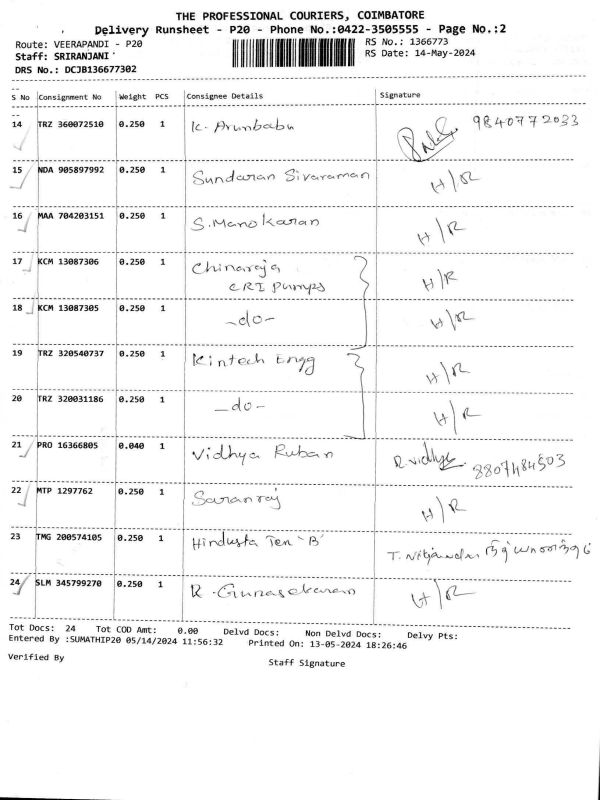 THE PROFESSIONAL COURIERS, COIMBATORE
Delivery Runsheet - P20 - Phone No.:0422-3505555 - Page No.:2
Route: VEERAPANDI - P20 RS No.: 1366773
Staff: SRIRANJANI RS Date: 14-May-2024
DRS No.: DCJB136677302
S No Consignment No Weight PCS Consignee Details Signature
14 TRZ 360072510 0.250 1 K. Arunbabu 9840772033
15 NDA 905897992 0.250 1 Sundaran Sivaraman H/R
16 MAA 704203151 0.250 1 S.Manokaran H/R
17 KCM 13087306 0.250 1 Chinaraja H/R
CRI Pumps
18 KCM 13087305 0.250 1 -do- H/R
19 TRZ 320540737 0.250 1 Kintech Engg H/R
20 TRZ 320031186 0.250 1 -do- H/R
21 PRO 16366805 0.040 1 Vidhya Ruban R.Vidhya 8807484503
22 MTP 1297762 0.250 1 Saranraj H/R
23 TMG 200574105 0.250 1 Hindusta Ten 'B' T.
24 SLM 345799270 0.250 1 R.Gunasekaran H/R
Tot Docs: 24 Tot COD Amt: 0.00 Delvd Docs: Non Delvd Docs: Delvy Pts:
Entered By :SUMATHIP20 05/14/2024 11:56:32 Printed On: 13-05-2024 18:26:46
Verified By Staff Signature